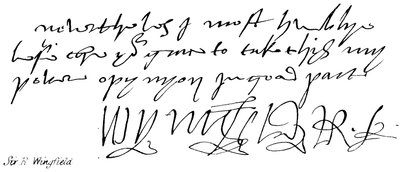 nevertheles I most humblye
yor grace to take this my
opynyon in good parte
Sir R Wingfield